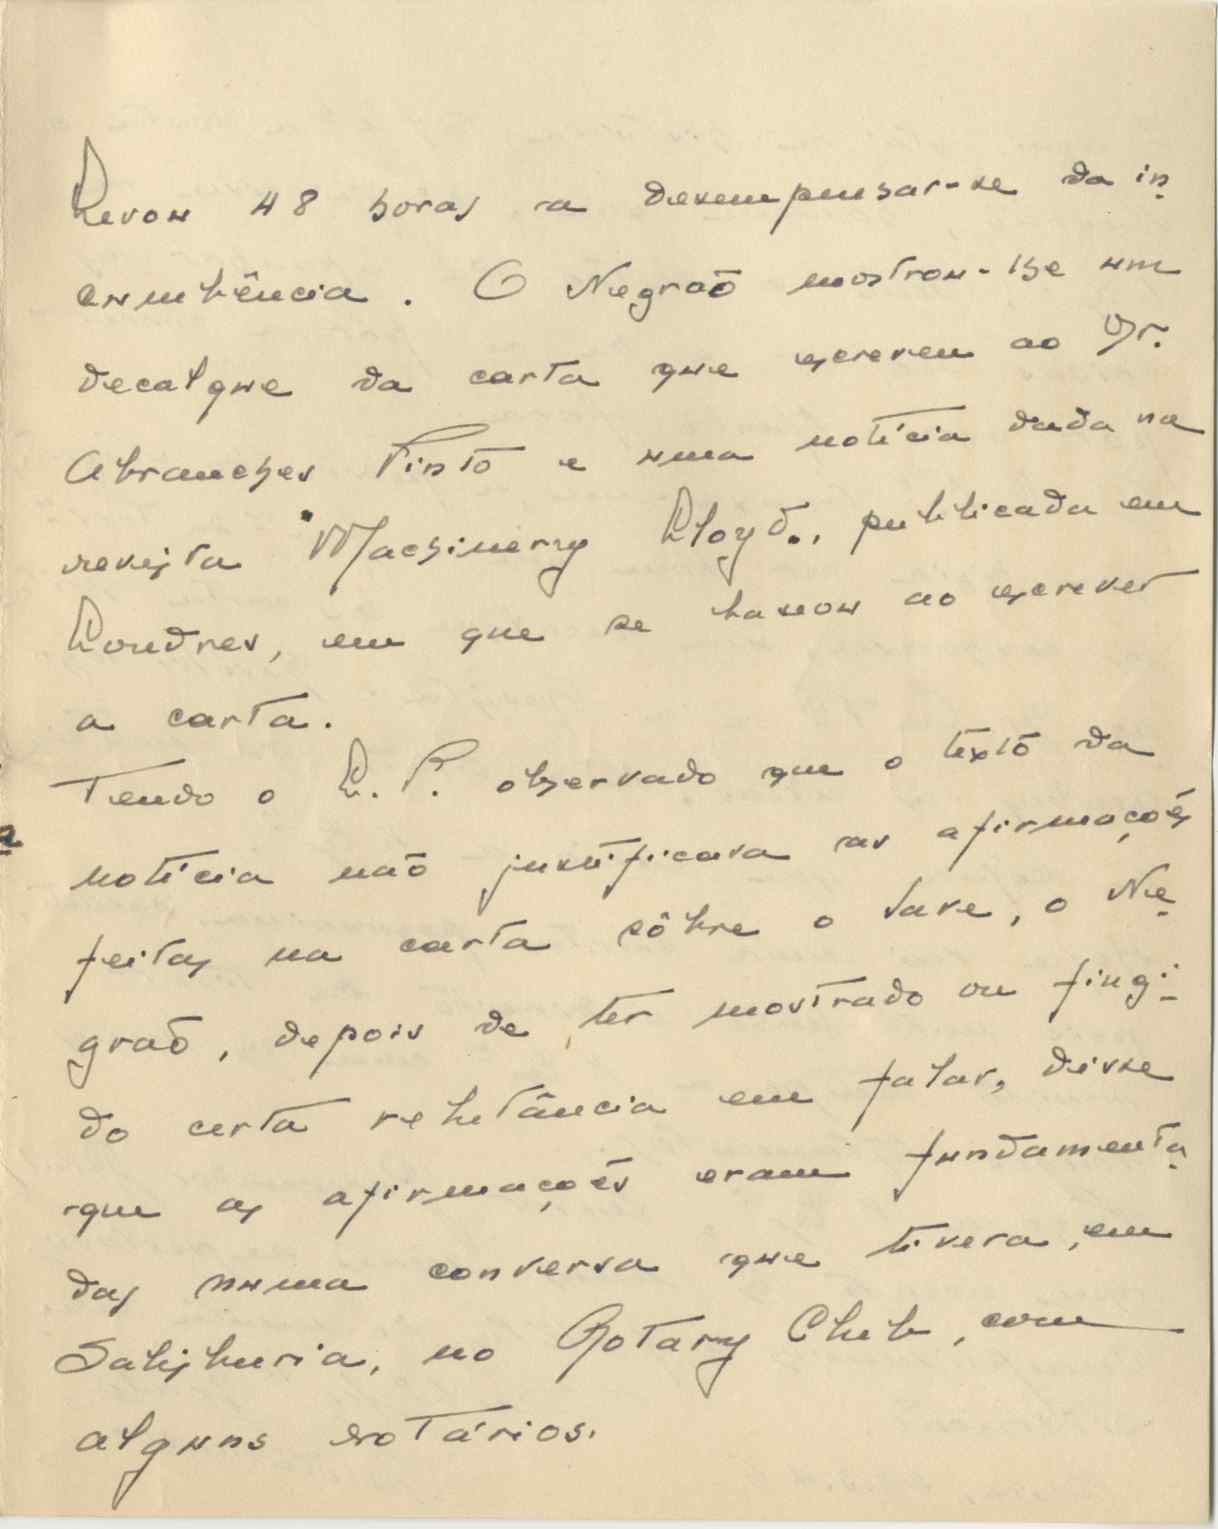 Levou 48 horas a desempenhar-se da in-
cumbência. O Negrão mostrou-lhe um
decalque da carta que escreveu ao Dr.
Abranches Pinto e uma notícia dada na
revista "Machinery Lloyd", publicada em
Londres, em que se baseou ao escrever
a carta.
Tendo o L. P. observado que o texto da
notícia não justificava as afirmações
feitas na carta sôbre o Save, o Ne-
grão, depois de ter mostrado ou fingi-
do certa relutância em falar, disse
que as afirmações eram fundamenta-
das numa conversa que tivera, em
Salisburia, no Rotary Club, com
alguns rotários.